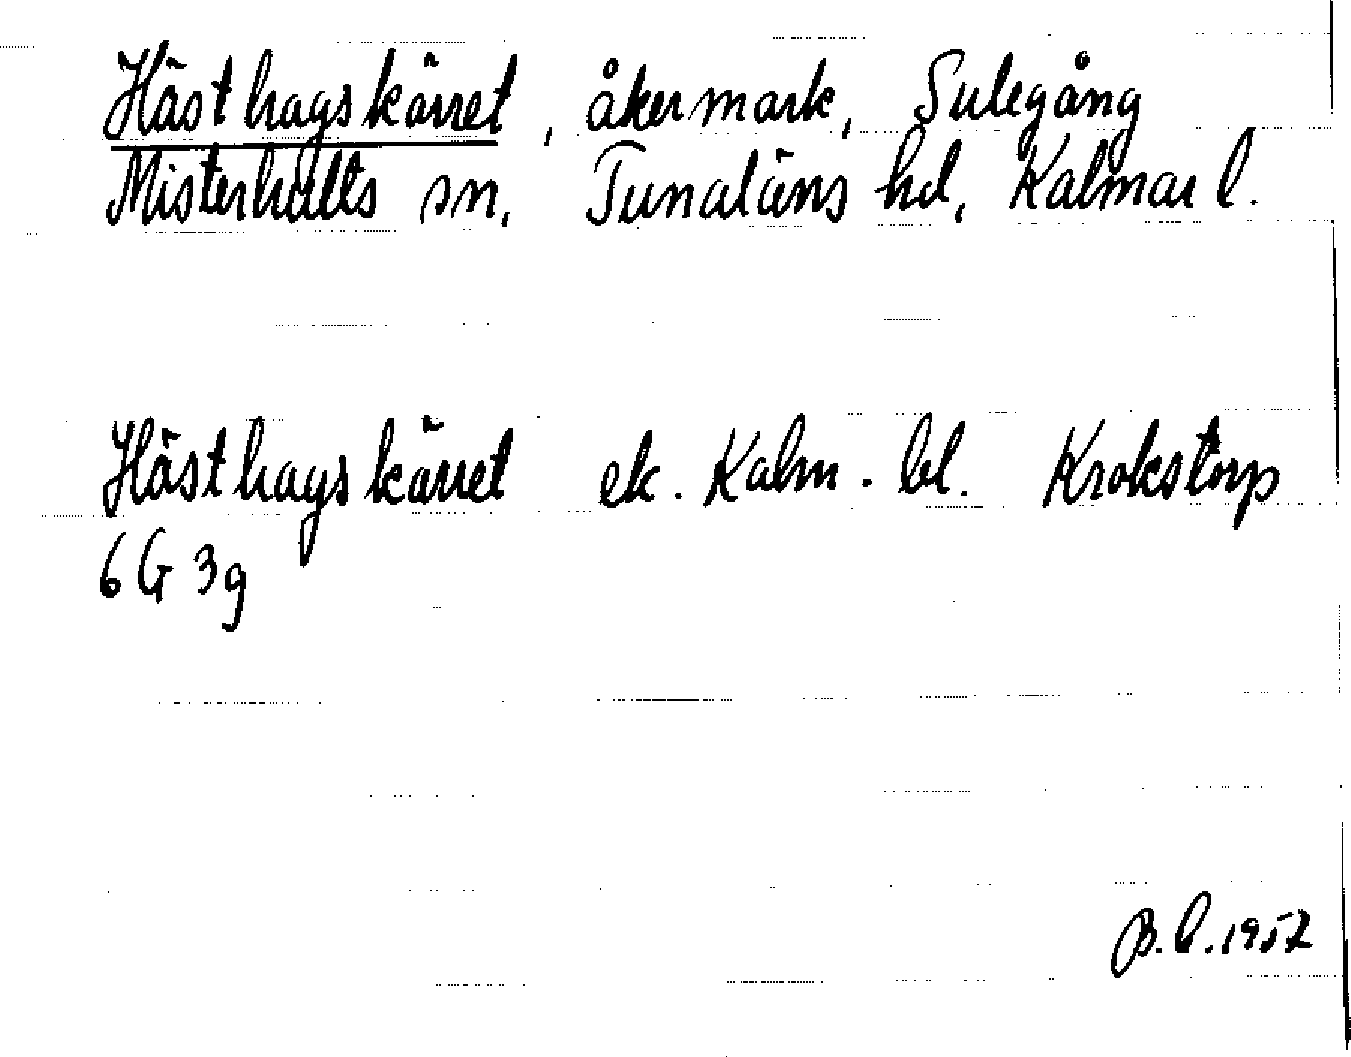 Hästhagskärret, åkermark, Sulegång
Misterhults sn, Tunaläns hd, Kalmar l.
Hästhagskärret ek. Kalm. bl. Krokstorp
6G 3g
B.L. 1957